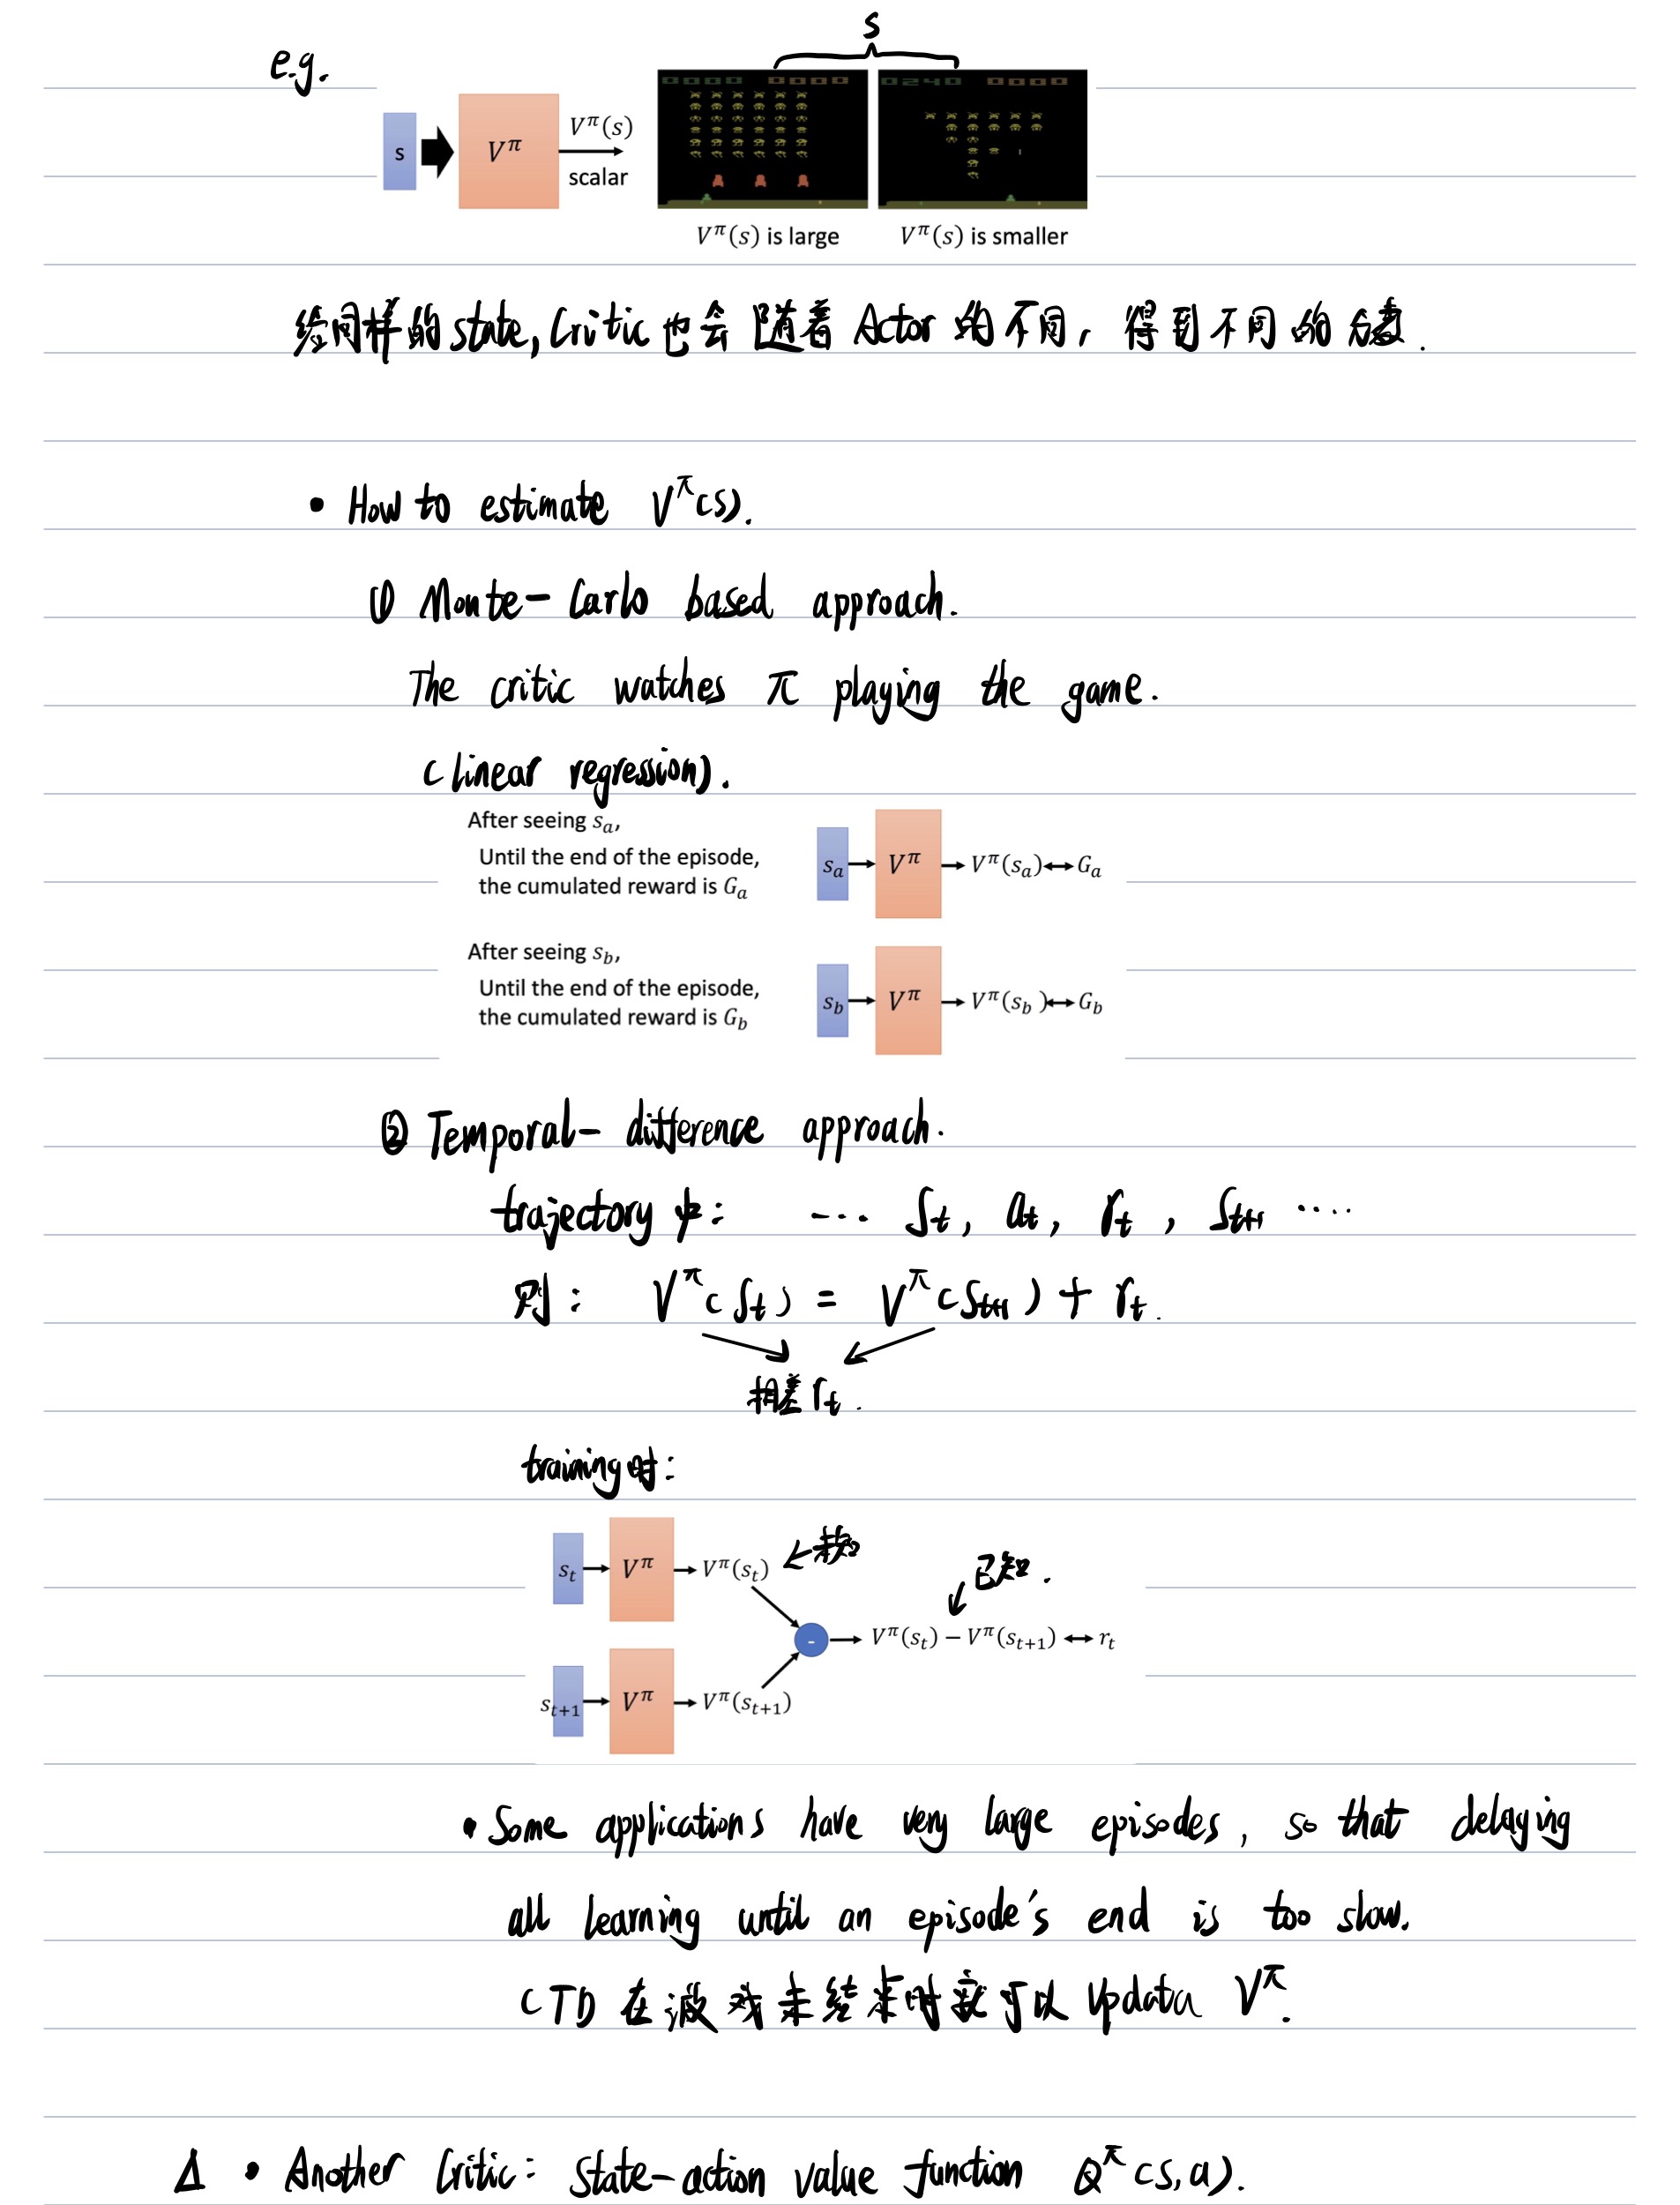 S
e.g.
0000 0000 0240 0000
s V^π V^π(s)
scalar
V^π(s) is large V^π(s) is smaller
给同样的 state, Critic 也会随着 Actor 的不同, 得到不同的分数.
• How to estimate V^π(s).
① Monte-Carlo based approach.
The critic watches π playing the game.
(linear regression).
After seeing s_a,
Until the end of the episode,
the cumulated reward is G_a
s_a V^π V^π(s_a) ↔ G_a
After seeing s_b,
Until the end of the episode,
the cumulated reward is G_b
s_b V^π V^π(s_b) ↔ G_b
② Temporal-difference approach.
trajectory中: ... S_t, a_t, r_t, S_t+1 ....
则: V^π(S_t) = V^π(S_t+1) + r_t.
相差 r_t.
training时:
s_t V^π V^π(s_t) ← 未知
已知.
- V^π(s_t) − V^π(s_t+1) ↔ r_t
s_t+1 V^π V^π(s_t+1)
• Some applications have very large episodes, so that delaying
all learning until an episode's end is too slow.
(TD 在游戏未结束时就可以 updata V^π.
Δ • Another Critic: State-action value function Q^π(s,a).